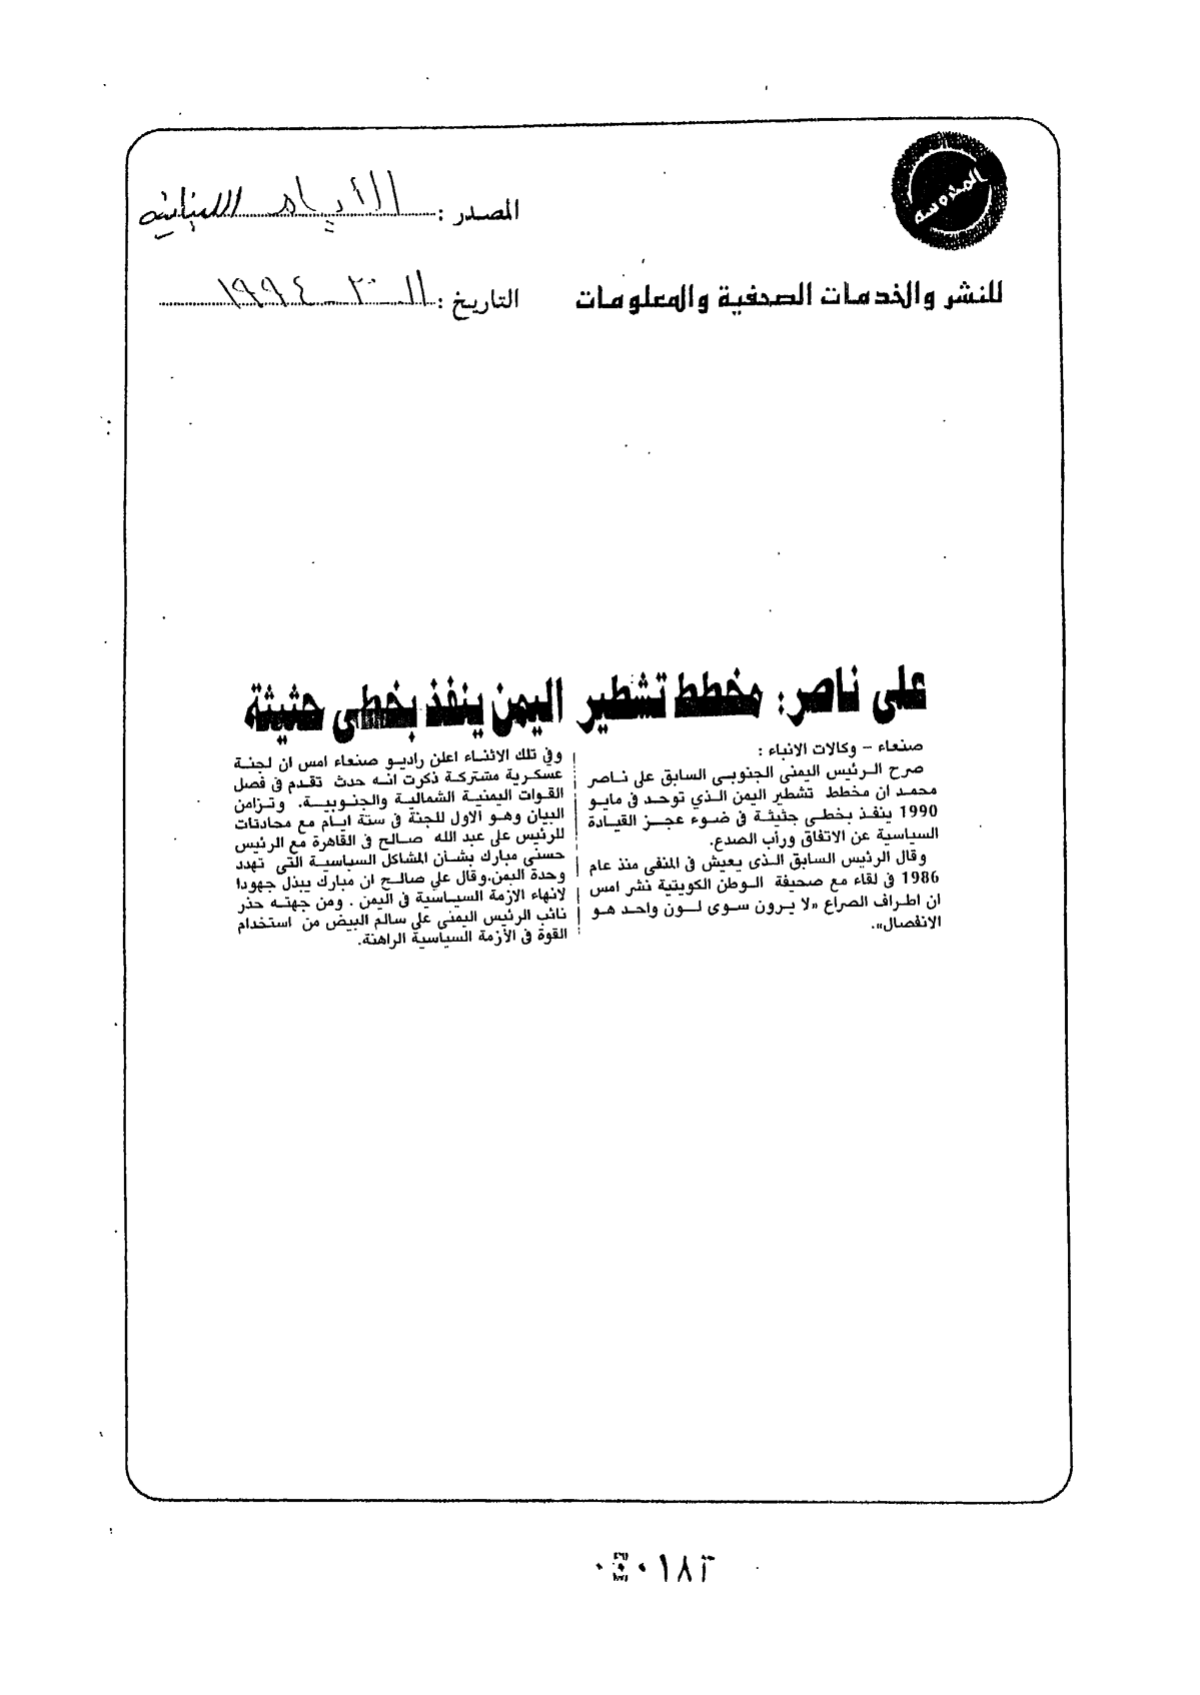 المحروسة
المصدر : الأيام اللبنانية
للنشر والخدمات الصحفية والمعلومات
التاريخ : ١١ ١٩٩٤
على ناصر: مخطط تشطير اليمن ينفذ بخطى حثيثة
صنعاء - وكالات الانباء :
صرح الرئيس اليمنى الجنوبى السابق على ناصر
محمد ان مخطط تشطير اليمن الذي توحد فى مايو
1990 ينفذ بخطى جثيثة فى ضوء عجز القيادة
السياسية عن الاتفاق ورأب الصدع.
وقال الرئيس السابق الذى يعيش فى المنفى منذ عام
1986 فى لقاء مع صحيفة الوطن الكويتية نشر امس
ان اطراف الصراع «لا يرون سوى لون واحد هو
الانفصال».
وفي تلك الاثناء اعلن راديو صنعاء امس ان لجنة
عسكرية مشتركة ذكرت انه حدث تقدم فى فصل
القوات اليمنية الشمالية والجنوبية. وتزامن
البيان وهو الاول للجنة فى ستة ايام مع محادثات
للرئيس على عبد الله صالح فى القاهرة مع الرئيس
حسنى مبارك بشأن المشاكل السياسية التى تهدد
وحدة اليمن.وقال علي صالح ان مبارك يبذل جهودا
لانهاء الازمة السياسية فى اليمن . ومن جهته حذر
نائب الرئيس اليمنى على سالم البيض من استخدام
القوة فى الأزمة السياسية الراهنة.